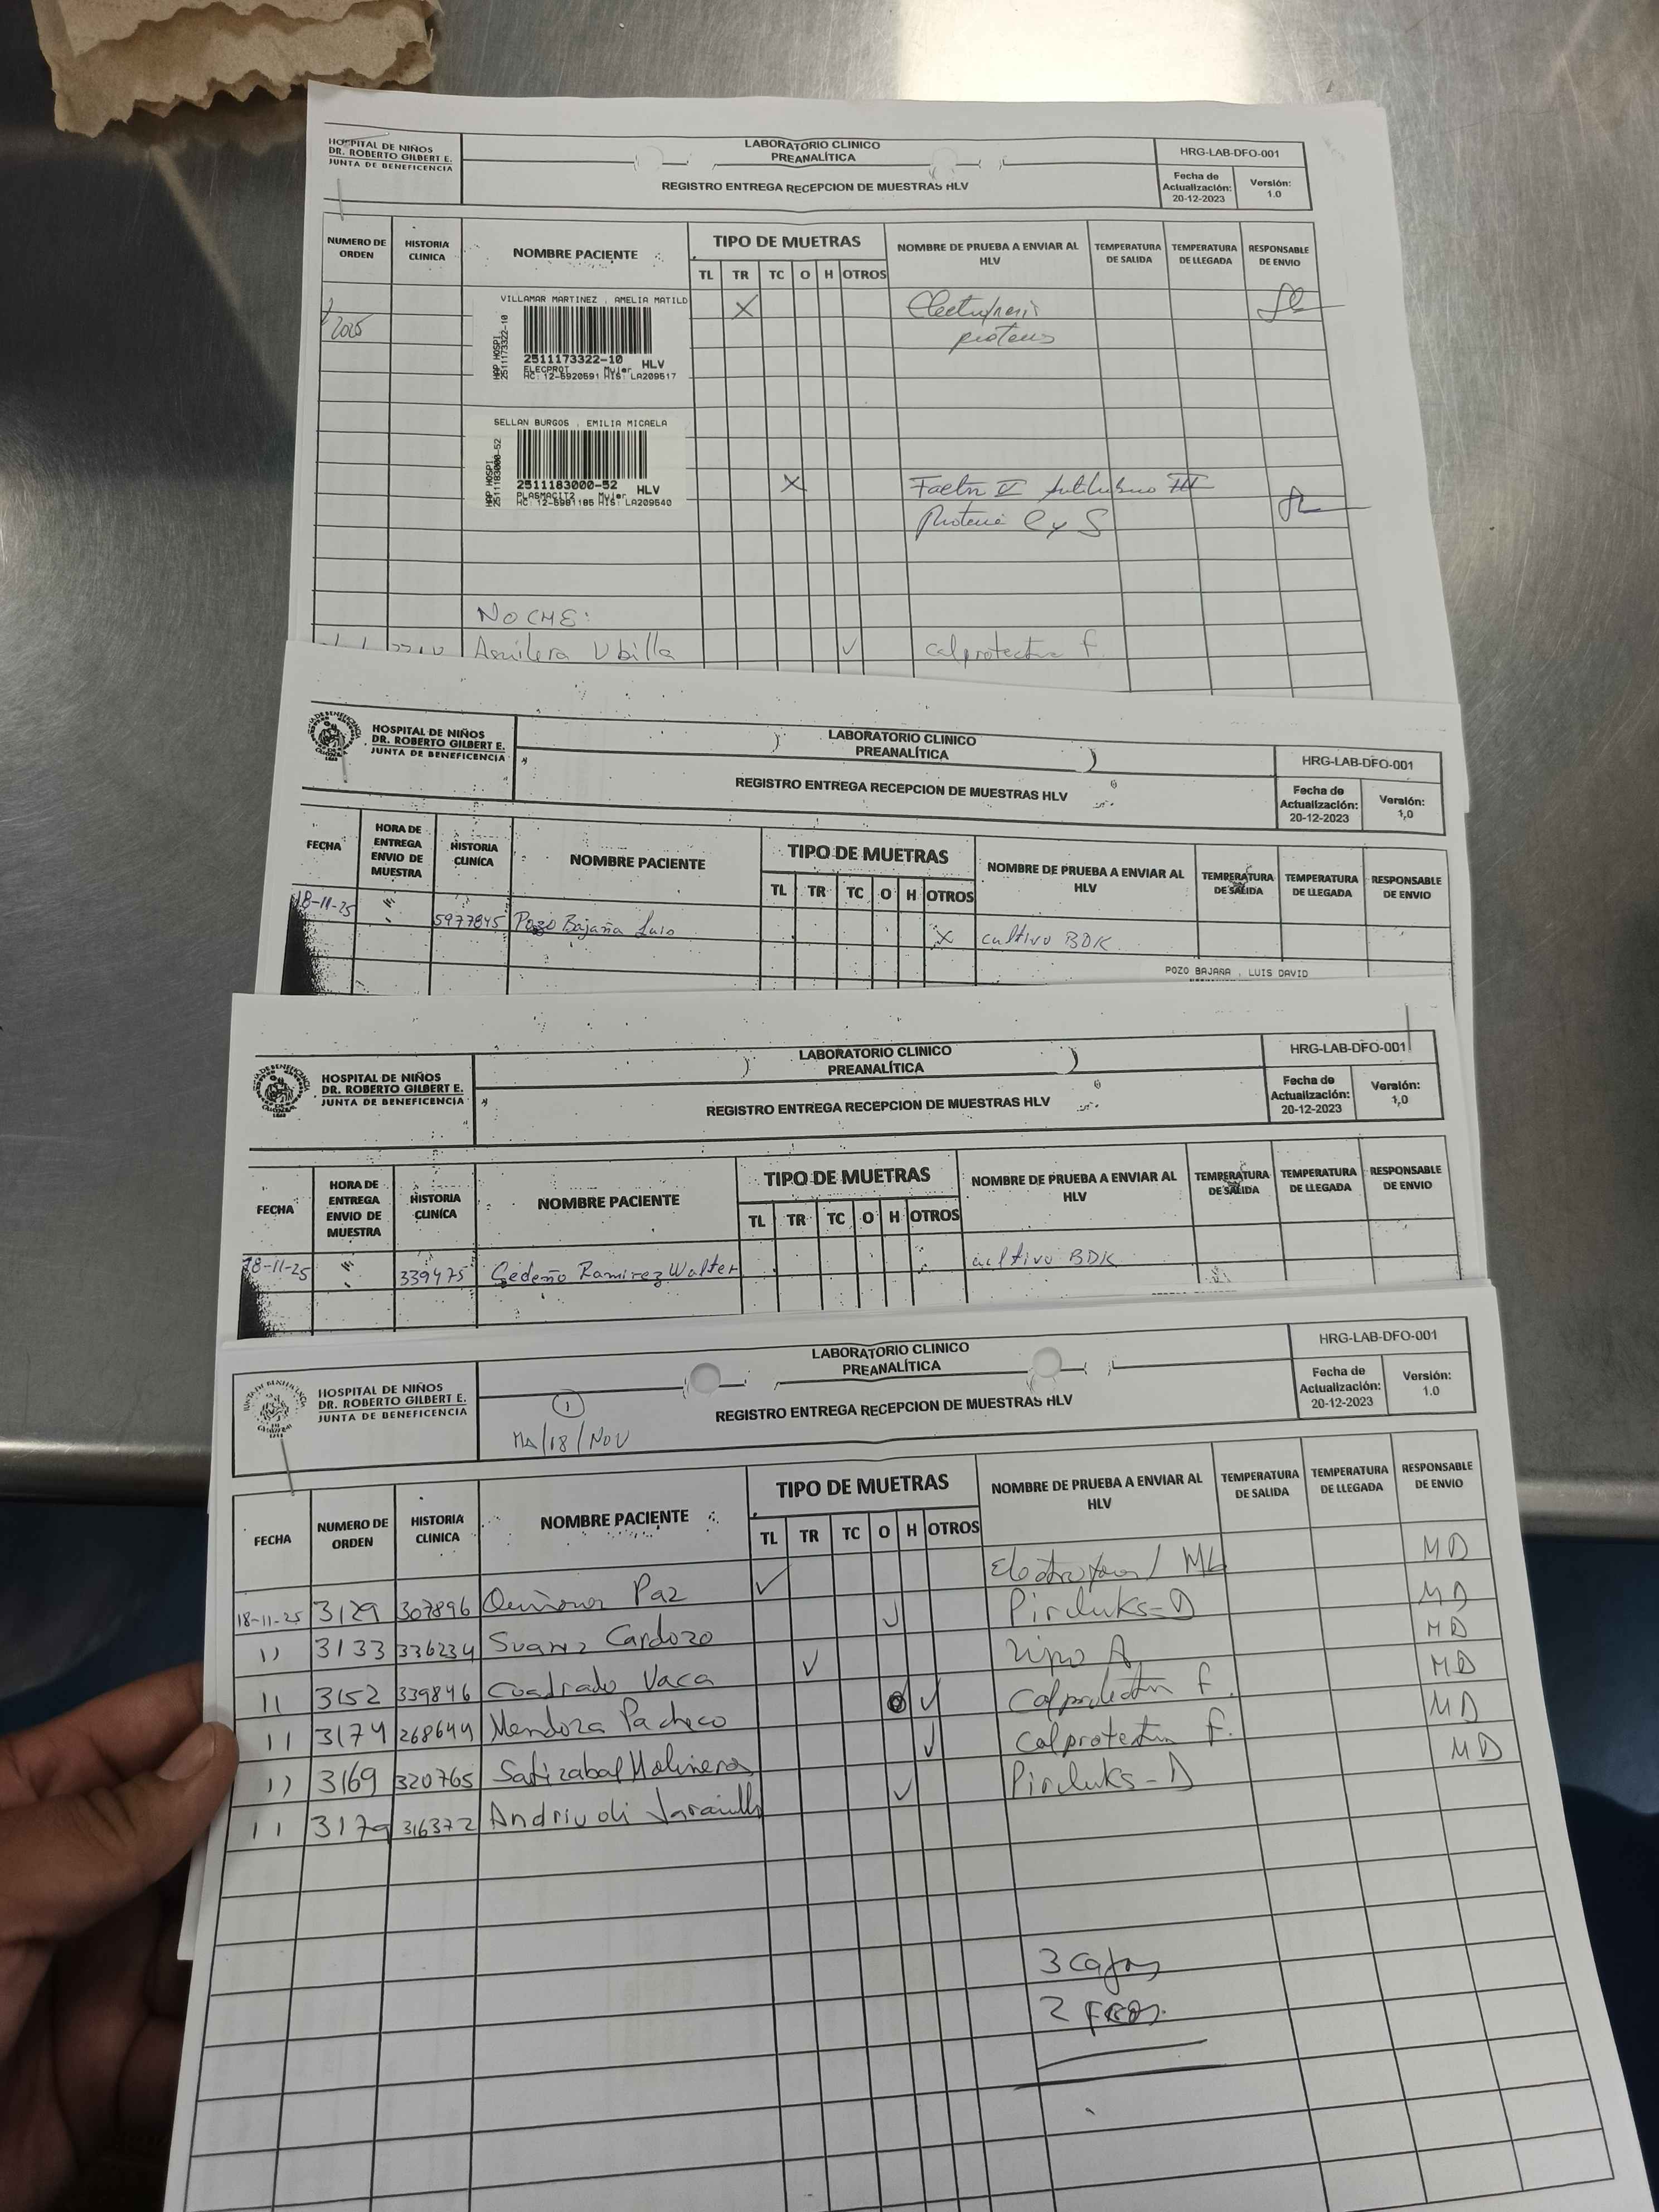 HOSPITAL DE NIÑOS
DR. ROBERTO GILBERT E.
JUNTA DE BENEFICENCIA
LABORATORIO CLINICO
PREANALÍTICA
REGISTRO ENTREGA RECEPCION DE MUESTRAS HLV
HRG-LAB-DFO-001
Fecha de Actualización: 20-12-2023
Versión: 1.0
NUMERO DE ORDEN HISTORIA CLINICA NOMBRE PACIENTE TIPO DE MUETRAS NOMBRE DE PRUEBA A ENVIAR AL HLV TEMPERATURA DE SALIDA TEMPERATURA DE LLEGADA RESPONSABLE DE ENVIO
TL TR TC O H OTROS
2025
VILLAMAR MARTINEZ , AMELIA MATILD
HOSPI
2511173322-10
2511173322-10 HLV
ELECPROT Mujer
HC: 12-5920591 HIS: LA209517
X
proteus
SELLAN BURGOS , EMILIA MICAELA
HOSPI
2511183000-52
2511183000-52 HLV
PLASMACIT2 Mujer
HC: 12-5981185 HIS: LA209540
X Factor V III
C y S
NOCHE:
Aguilera Ubilla ✓ calprotectina f.
HOSPITAL DE NIÑOS
DR. ROBERTO GILBERT E.
JUNTA DE BENEFICENCIA
LABORATORIO CLINICO
PREANALÍTICA
REGISTRO ENTREGA RECEPCION DE MUESTRAS HLV
HRG-LAB-DFO-001
Fecha de Actualización: 20-12-2023
Versión: 1,0
FECHA HORA DE ENTREGA ENVIO DE MUESTRA HISTORIA CLINICA NOMBRE PACIENTE TIPO DE MUETRAS NOMBRE DE PRUEBA A ENVIAR AL HLV TEMPERATURA DE SALIDA TEMPERATURA DE LLEGADA RESPONSABLE DE ENVIO
TL TR TC O H OTROS
18-11-25 " 5977845 Pozo Bajaña Luis X cultivo BDK
POZO BAJAÑA , LUIS DAVID
HOSPITAL DE NIÑOS
DR. ROBERTO GILBERT E.
JUNTA DE BENEFICENCIA
LABORATORIO CLINICO
PREANALÍTICA
REGISTRO ENTREGA RECEPCION DE MUESTRAS HLV
HRG-LAB-DFO-001
Fecha de Actualización: 20-12-2023
Versión: 1,0
FECHA HORA DE ENTREGA ENVIO DE MUESTRA HISTORIA CLINICA NOMBRE PACIENTE TIPO DE MUETRAS NOMBRE DE PRUEBA A ENVIAR AL HLV TEMPERATURA DE SALIDA TEMPERATURA DE LLEGADA RESPONSABLE DE ENVIO
TL TR TC O H OTROS
18-11-25 " 339475 Cedeño Ramirez Walter cultivo BDK
HOSPITAL DE NIÑOS
DR. ROBERTO GILBERT E.
JUNTA DE BENEFICENCIA
LABORATORIO CLINICO
PREANALÍTICA
REGISTRO ENTREGA RECEPCION DE MUESTRAS HLV
HRG-LAB-DFO-001
Fecha de Actualización: 20-12-2023
Versión: 1.0
1
MA/18/NOV
FECHA NUMERO DE ORDEN HISTORIA CLINICA NOMBRE PACIENTE TIPO DE MUETRAS NOMBRE DE PRUEBA A ENVIAR AL HLV TEMPERATURA DE SALIDA TEMPERATURA DE LLEGADA RESPONSABLE DE ENVIO
TL TR TC O H OTROS
18-11-25 3129 307896 Paz ✓ MD
11 3133 336234 Suarez Cardozo ✓ Pirduks-D MD
11 3152 339846 Cuadrado Vaca ✓ MD
11 3174 268644 Mendoza Pacheco ✓ Calprotectin F. MD
11 3169 320765 Satizabal Molineros ✓ Calprotectin F. MD
11 3179 316372 ✓ Pirduks-D MD
3 cajas
2